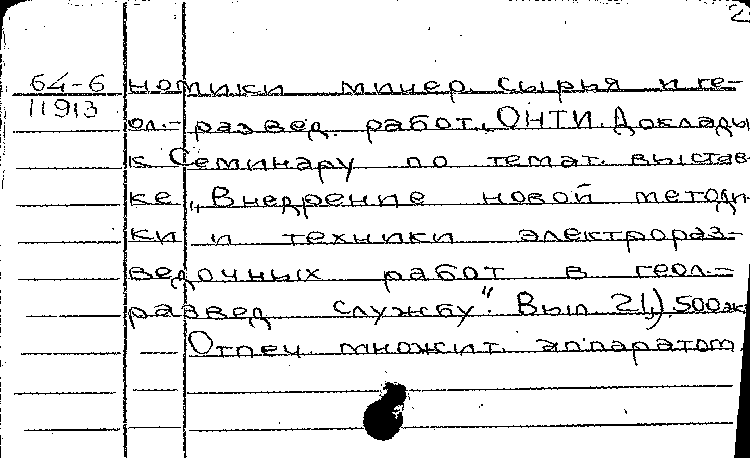 2
64-6 номики минер. сырья и ге-
11913
ол.-развед. работ. ОНТИ. Доклады
к Семинару по темат. выстав-
ке „Внедрение новой методи-
ки и техники электрораз-
ведочных работ в геол.-
развед службу". Вып. 21,) 500 эк
Отпеч. множит. аппаратом.